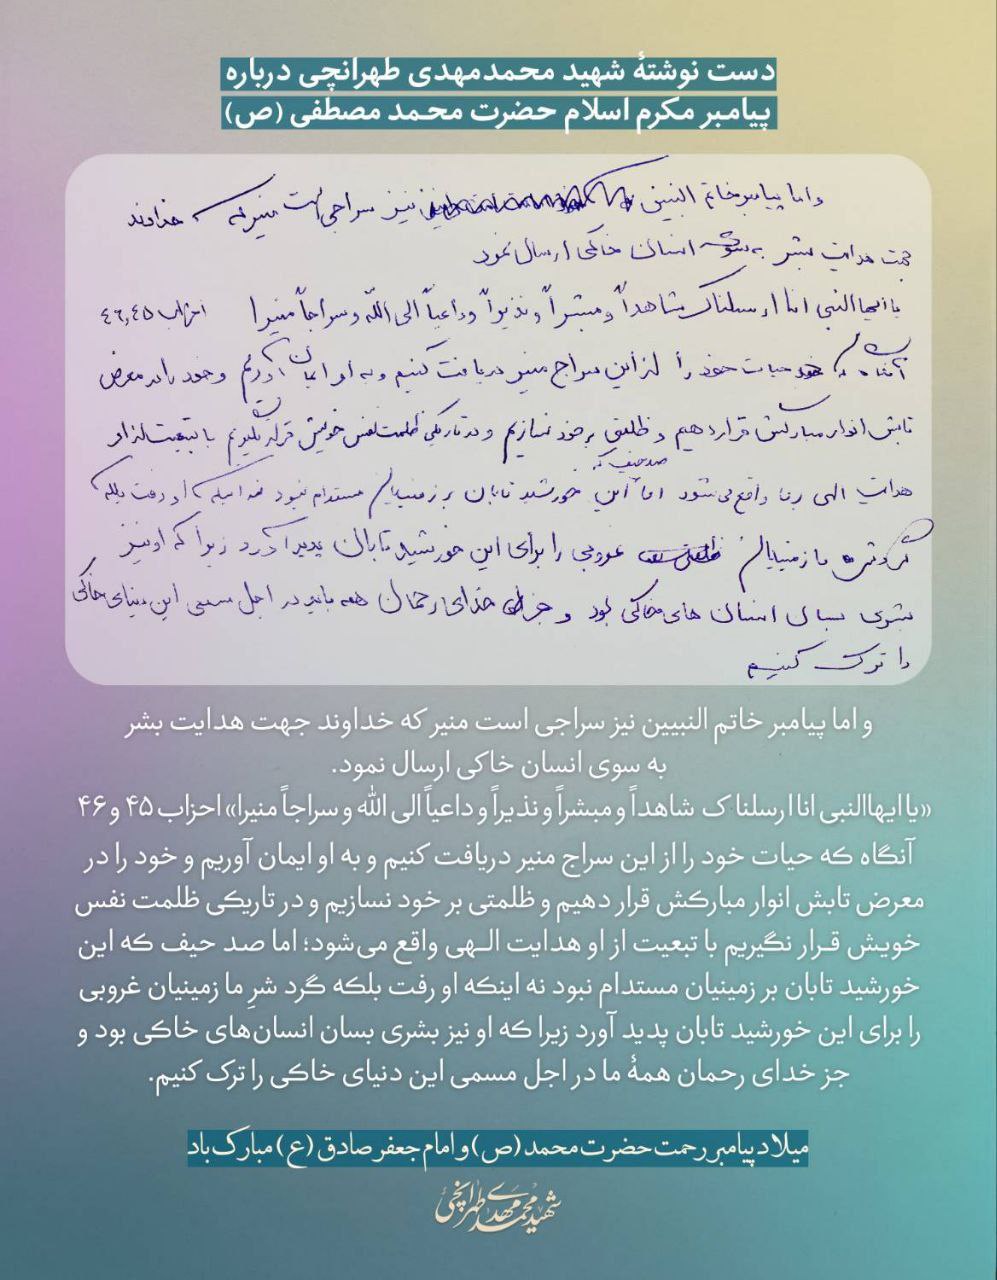 دست نوشتهٔ شهید محمدمهدی طهرانچی درباره
پیامبر مکرم اسلام حضرت محمد مصطفی (ص)
و اما پیامبر خاتم النبیین نیز سراجی است منیر که خداوند
جهت هدایت بشر به سوی انسان خاکی ارسال نمود
یا ایها النبی انا ارسلناک شاهداً و مبشراً و نذیراً و داعیاً الی الله و سراجاً منیرا احزاب ۴۵, ۴۶
آنگاه که حیات خود را از این سراج منیر دریافت کنیم و به او ایمان آوریم و خود را در معرض
تابش انوار مبارکش قرار دهیم و ظلمتی بر خود نسازیم و در تاریکی ظلمت نفس خویش قرار نگیریم با تبعیت از او
هدایت الهی رخ واقع می‌شود اما صد حیف که این خورشید تابان بر زمینیان مستدام نبود نه اینکه او رفت بلکه
گرد ما زمینیان غروبی را برای این خورشید تابان پدید آورد زیرا که او نیز
بشری بسان انسان های خاکی بود و جز خدای رحمان همه باید در اجل مسمی این دنیای خاکی
را ترک کنیم
و اما پیامبر خاتم النبیین نیز سراجی است منیر که خداوند جهت هدایت بشر
به سوی انسان خاکی ارسال نمود.
«یا ایهاالنبی انا ارسلناک شاهداً و مبشراً و نذیراً و داعیاً الی الله و سراجاً منیرا» احزاب ۴۵ و ۴۶
آنگاه که حیات خود را از این سراج منیر دریافت کنیم و به او ایمان آوریم و خود را در
معرض تابش انوار مبارکش قرار دهیم و ظلمتی بر خود نسازیم و در تاریکی ظلمت نفس
خویش قرار نگیریم با تبعیت از او هدایت الهی واقع می‌شود؛ اما صد حیف که این
خورشید تابان بر زمینیان مستدام نبود نه اینکه او رفت بلکه گرد شرِ ما زمینیان غروبی
را برای این خورشید تابان پدید آورد زیرا که او نیز بشری بسان انسان‌های خاکی بود و
جز خدای رحمان همهٔ ما در اجل مسمی این دنیای خاکی را ترک کنیم.
میلاد پیامبر رحمت حضرت محمد (ص) و امام جعفر صادق (ع) مبارک باد
شهید محمدمهدی طهرانچی